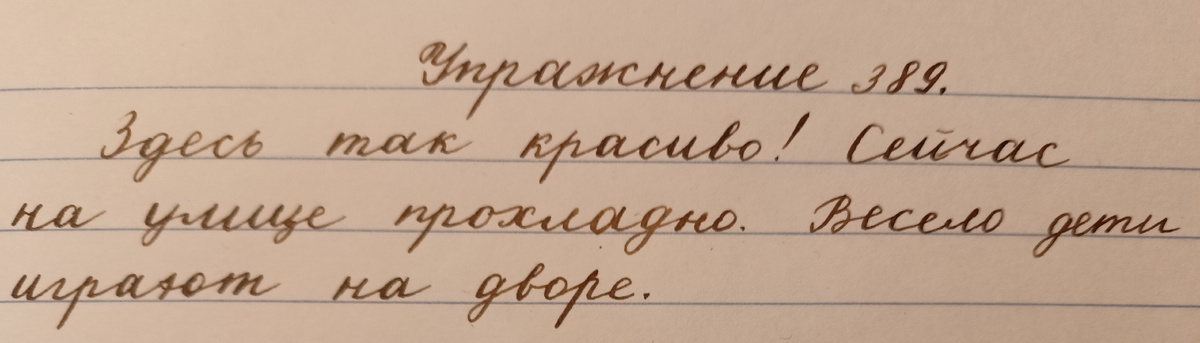 Упражнение 389.
Здесь так красиво! Сейчас
на улице прохладно. Весело дети
играют на дворе.